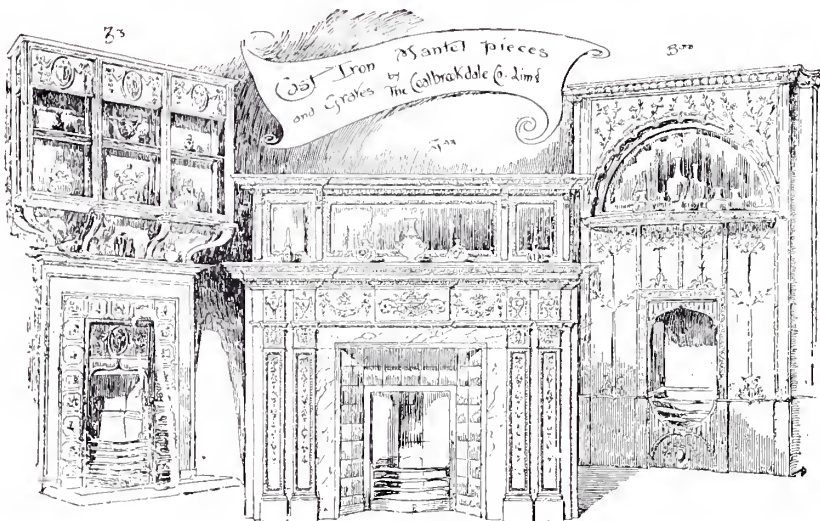 Cast Iron Mantel pieces
and Grates by
The Coalbrakdale Co. Limd